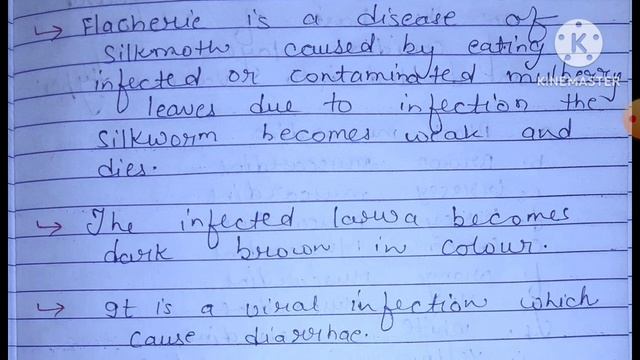 → Flacherie is a disease of
silkmoth caused by eating
infected or contaminated mulberry
leaves due to infection the
silkworm becomes weak and
dies.
→ The infected larva becomes
dark brown in colour.
→ It is a viral infection which
cause diarrhae.
K
KINEMASTER